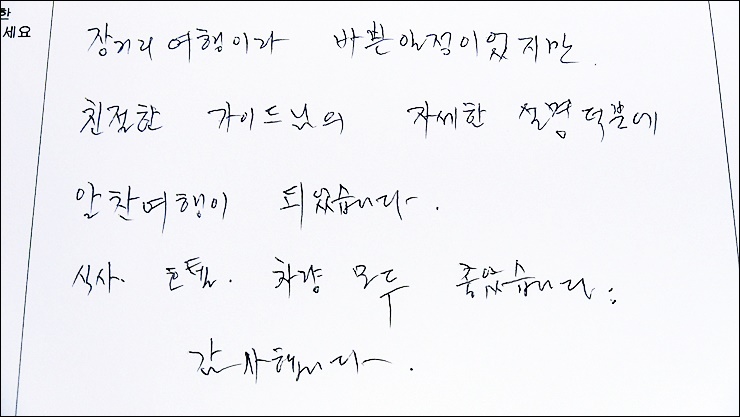 한
세요
장거리 여행이라 바쁜 일정이었지만
친절한 가이드님의 자세한 설명 덕분에
알찬여행이 되었습니다.
식사. 호텔. 차량 모두 좋았습니다.
감사합니다.